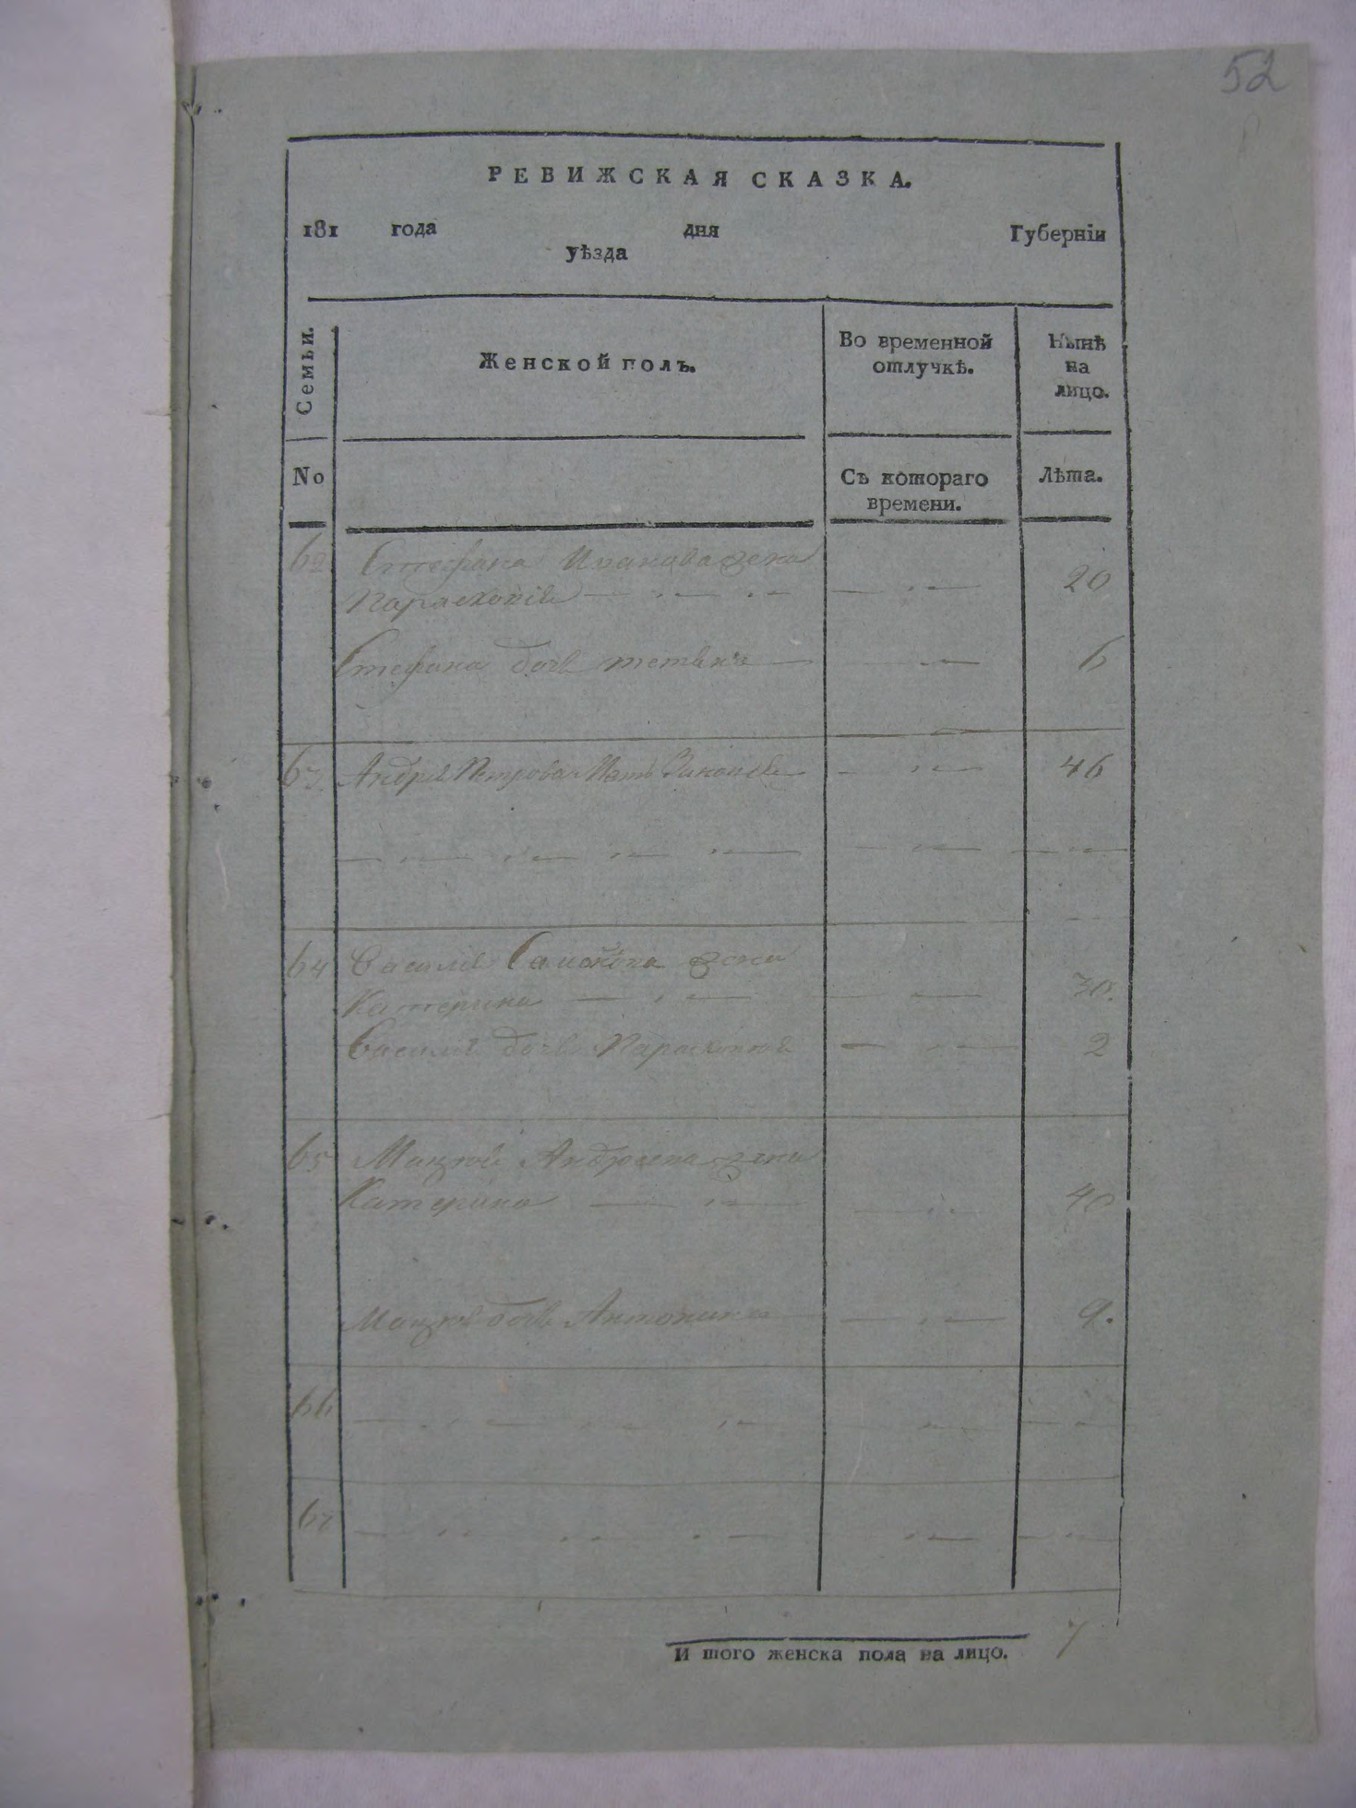 52
РЕВИЖСКАЯ СКАЗКА.
181 года дня Губернїи
уѣзда
Семьи. Женской полъ. Во временной отлучкѣ. Нынѣ на лицо.
No Съ котораго времени. Лѣта.
62 Стефана Иванова жена
Параскопїя 20
Стефана дочь 6
63 Петрова Мать 46
64 жена
Катерина 30.
дочь 2
65 жена
Катерина 40
дочь Антонина 9.
66
67
И того женска пола на лицо. 7